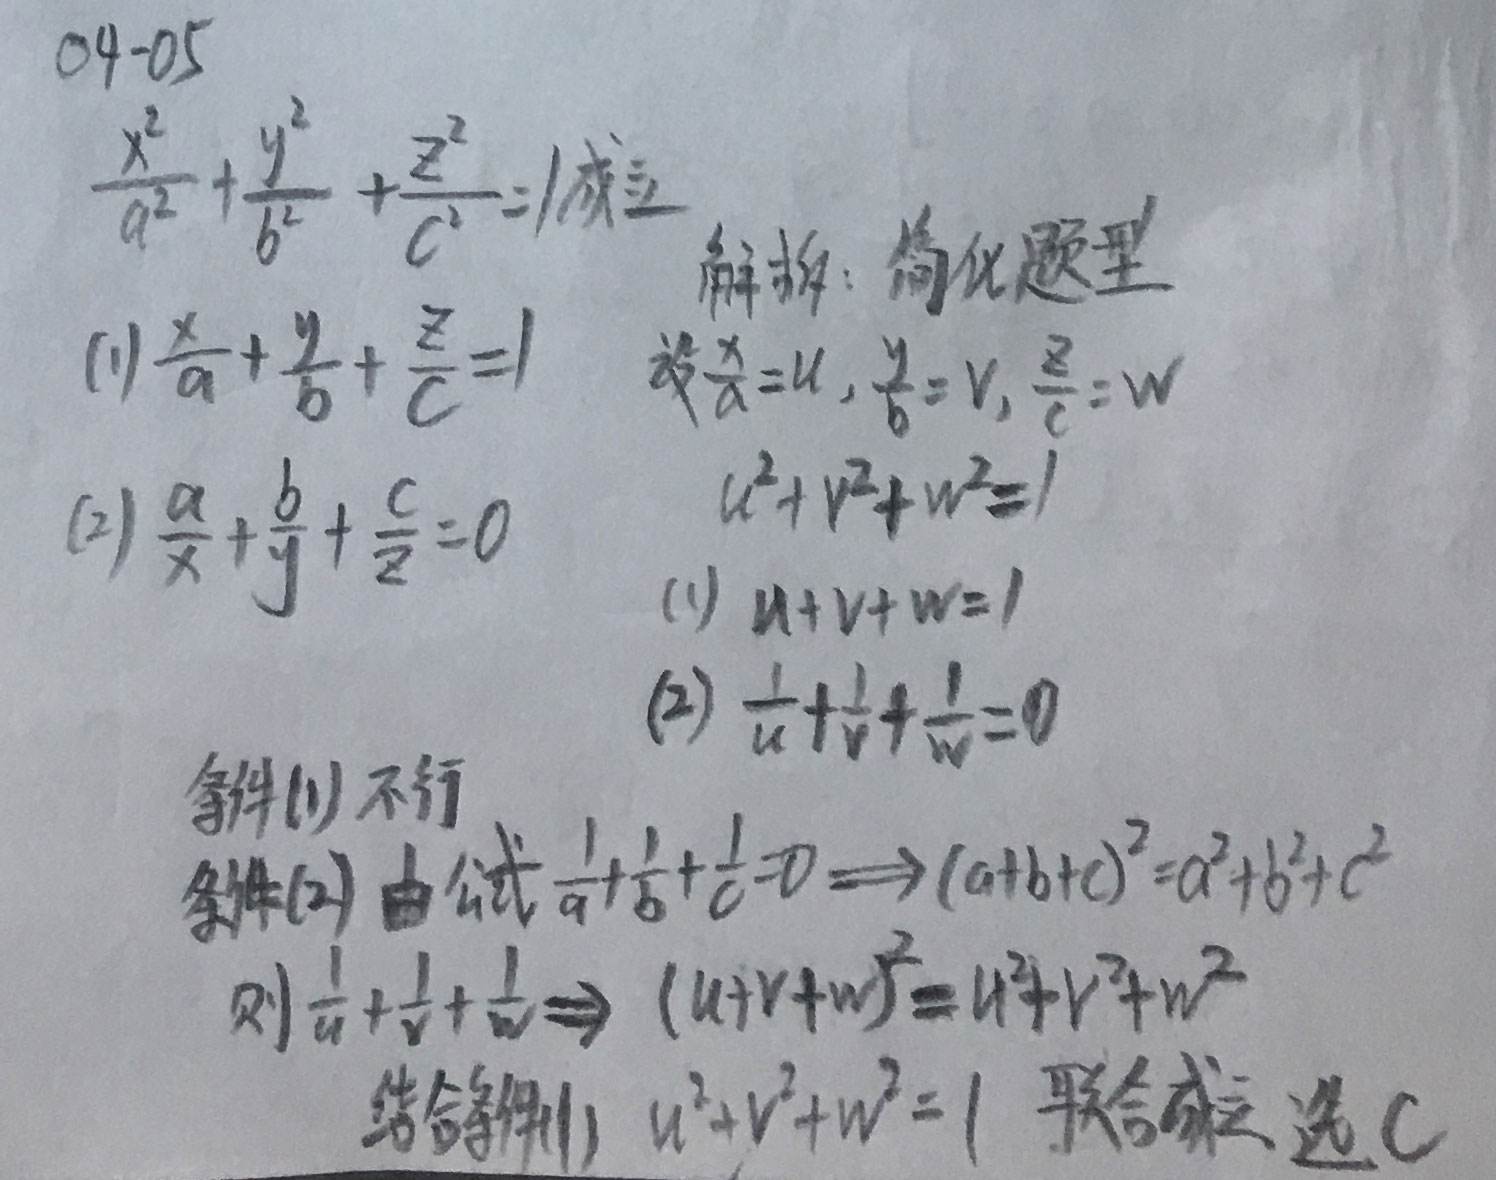 04-05
x²/a² + y²/b² + z²/c² = 1成立
(1) x/a + y/b + z/c = 1
(2) a/x + b/y + c/z = 0
解析：简化题型
设 x/a = u, y/b = v, z/c = w
u² + v² + w² = 1
(1) u + v + w = 1
(2) 1/u + 1/v + 1/w = 0
条件(1) 不行
条件(2) 由公式 1/a + 1/b + 1/c = 0 ⟹ (a+b+c)² = a² + b² + c²
则 1/u + 1/v + 1/w ⟹ (u+v+w)² = u² + v² + w²
结合条件(1) u² + v² + w² = 1 联合成立 选C